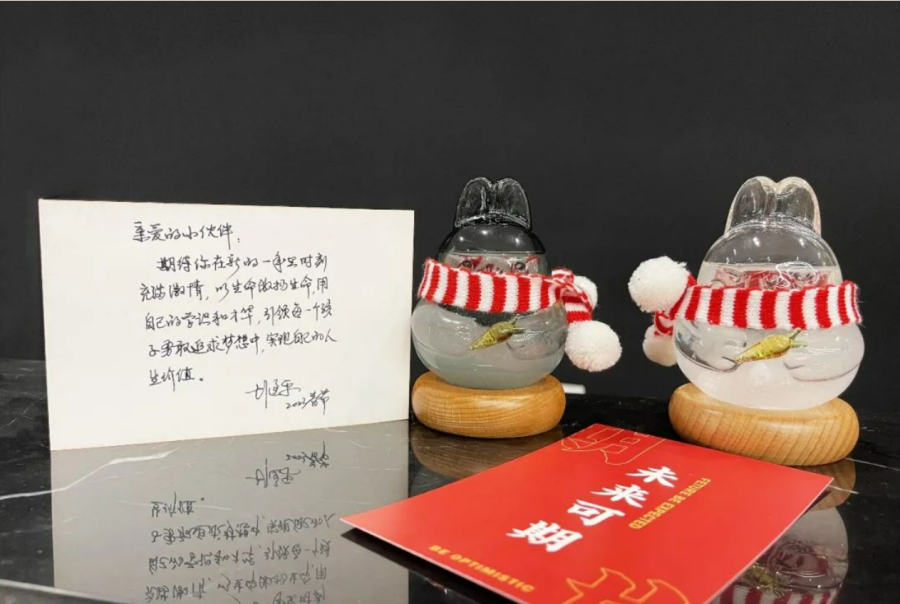 亲爱的小伙伴：
期待你在新的一年里时刻
充满激情，以生命激扬生命，用
自己的学识和才华，引领每一个孩
子勇敢追求梦想中，实现自己的人
生价值。
2023春节
未来可期
FETURE BE EXPECTED
BE OPTIMISTIC